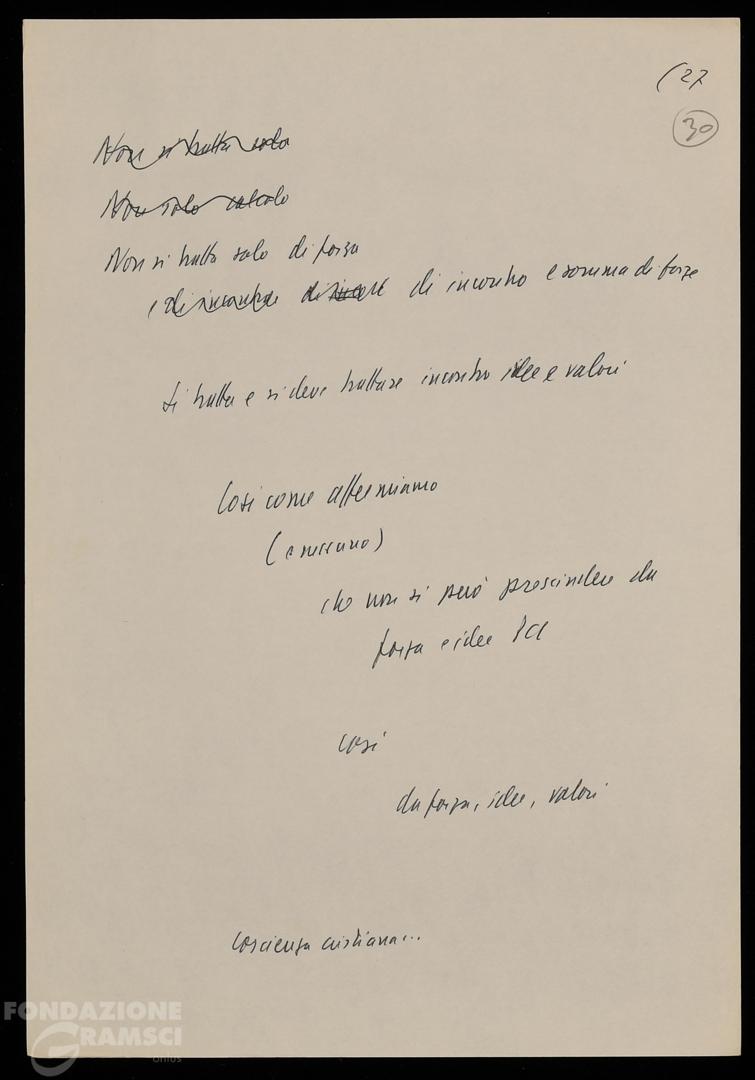 (27
30
Non si tratta solo
Non solo calcolo
Non si tratta solo di forza
e di incontro di incont di incontro e somma di forze
Si tratta e si deve trattare incontro idee e valori
Così come affermiamo
(e nessuno)
che non si può prescindere da
forza e idee PCI
così
da forza, idee, valori
Coscienza cristiana...
FONDAZIONE
GRAMSCI
onlus